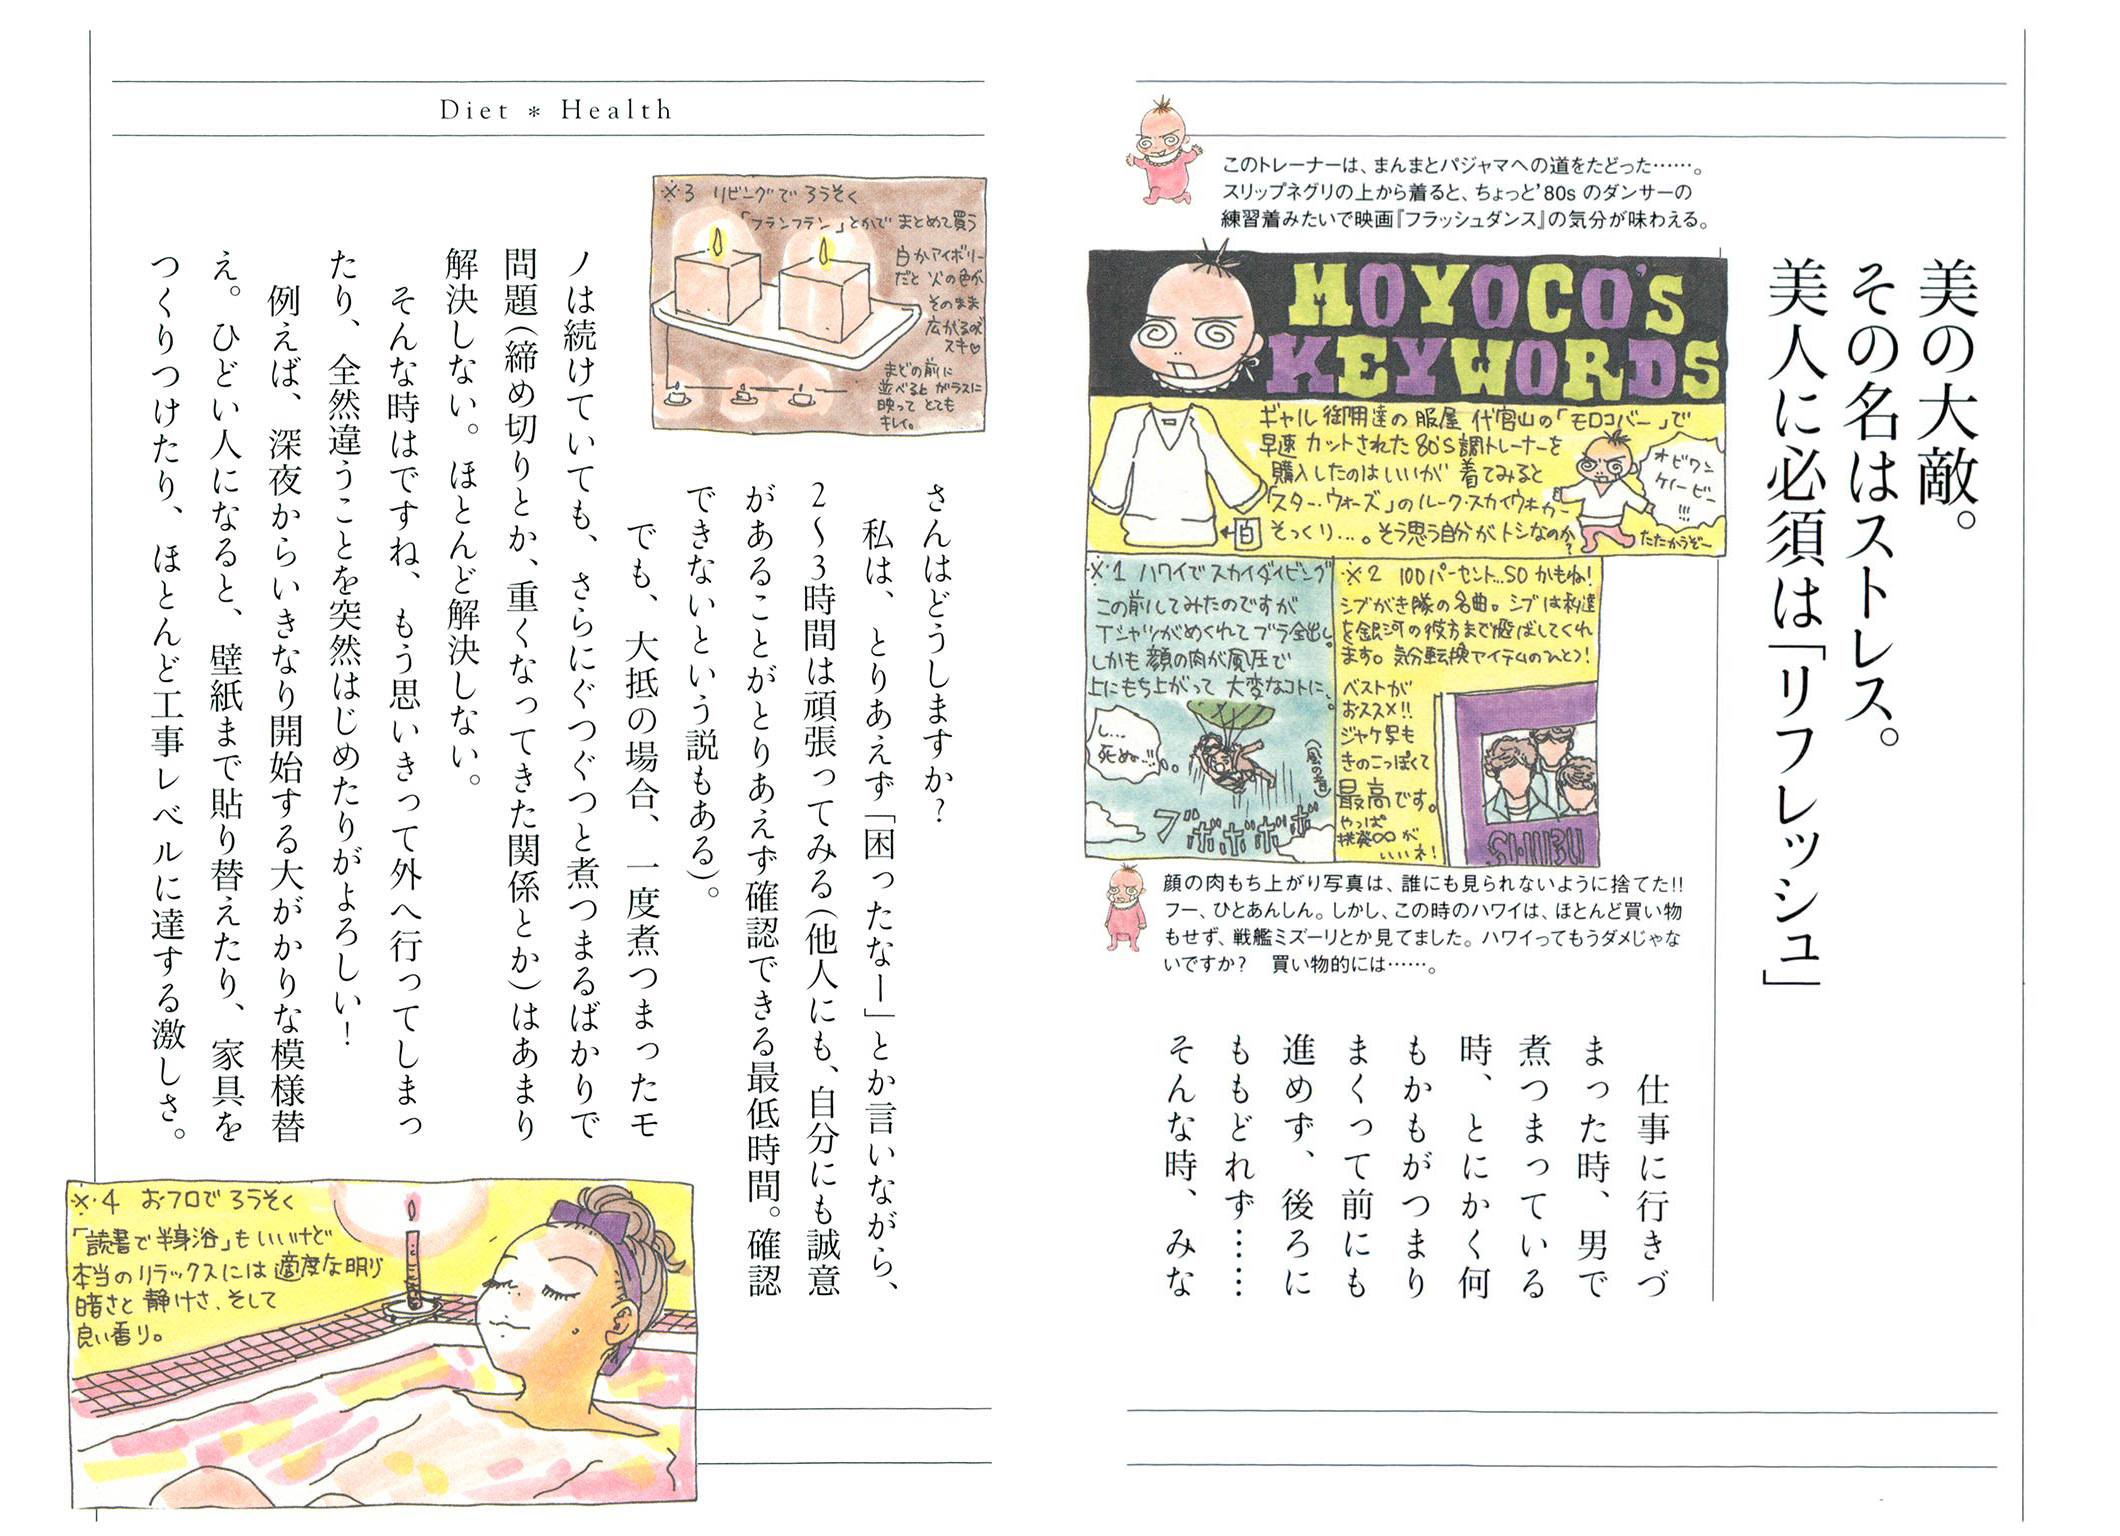 美の大敵。
その名はストレス。
美人に必須は「リフレッシュ」
このトレーナーは、まんまとパジャマへの道をたどった……。
スリップネグリの上から着ると、ちょっと'80sのダンサーの
練習着みたいで映画『フラッシュダンス』の気分が味わえる。
MOYOCO'S
KEYWORDS
ギャル御用達の服屋 代官山の「モロコバー」で
早速カットされた80'S調トレーナーを
購入したのはいいが 着てみると
「スター・ウォーズ」のルーク・スカイウォーカー
そっくり…。そう思う自分がトシなのか?
白
オビワン
ケノービー
!!!
たたかうぞー
※1 ハワイでスカイダイビング
この前してみたのですが
Tシャツがめくれてブラ全出し。
しかも顔の肉が風圧で
上にもち上がって 大変なコトに、
し…
死ぬ…!!
(風の音)
ブボボボボ
※2 100パーセント…SOかもね!
シブがき隊の名曲。シブは私達
を銀河の彼方まで飛ばしてくれ
ます。気分転換アイテムのひとつ!
ベストが
おススメ!!
ジャケ写も
きのこっぽくて
最高です。
やっぱ
挑発∞が
いいネ!
SHIBU
顔の肉もち上がり写真は、誰にも見られないように捨てた!!
フー、ひとあんしん。しかし、この時のハワイは、ほとんど買い物
もせず、戦艦ミズーリとか見てました。ハワイってもうダメじゃな
いですか? 買い物的には……。
仕事に行きづ
まった時、男で
煮つまっている
時、とにかく何
もかもがつまり
まくって前にも
進めず、後ろに
ももどれず……
そんな時、みな
Diet * Health
さんはどうしますか?
私は、とりあえず「困ったなー」とか言いながら、
2〜3時間は頑張ってみる(他人にも、自分にも誠意
があることがとりあえず確認できる最低時間。確認
できないという説もある)。
でも、大抵の場合、一度煮つまったモ
ノは続けていても、さらにぐつぐつと煮つまるばかりで
問題(締め切りとか、重くなってきた関係とか)はあまり
解決しない。ほとんど解決しない。
そんな時はですね、もう思いきって外へ行ってしまっ
たり、全然違うことを突然はじめたりがよろしい!
例えば、深夜からいきなり開始する大がかりな模様替
え。ひどい人になると、壁紙まで貼り替えたり、家具を
つくりつけたり、ほとんど工事レベルに達する激しさ。
※3 リビングでろうそく
「フランフラン」とかでまとめて買う
白かアイボリー
だと火の色が
そのまま
広がるので
スキ♡
まどの前に
並べるとガラスに
映って とても
キレイ。
※4 おフロでろうそく
「読書で半身浴」もいいけど
本当のリラックスには適度な明り
暗さと静けさ、そして
良い香り。